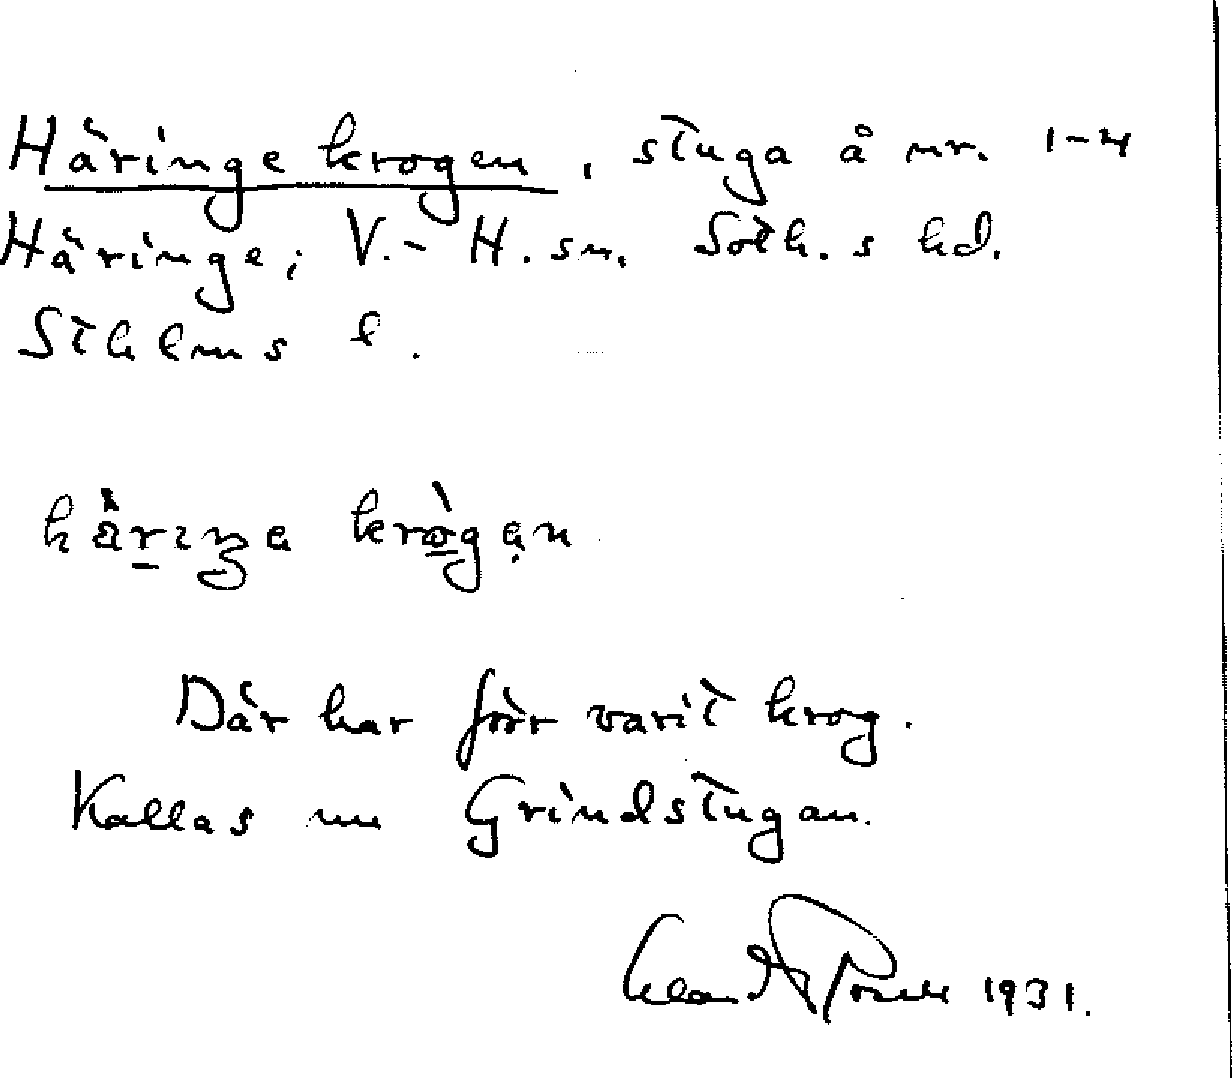 Häringe krogen, stuga å nr. 1-4
Häringe, V.-H. sn. Soth.s hd.
Sthlms l.
Där har förr varit krog.
Kallas nu Grindstugan.
1931.